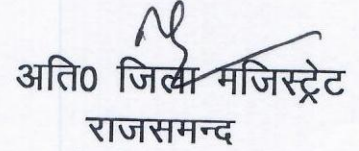 अति0 जिला मजिस्ट्रेट
राजसमन्द